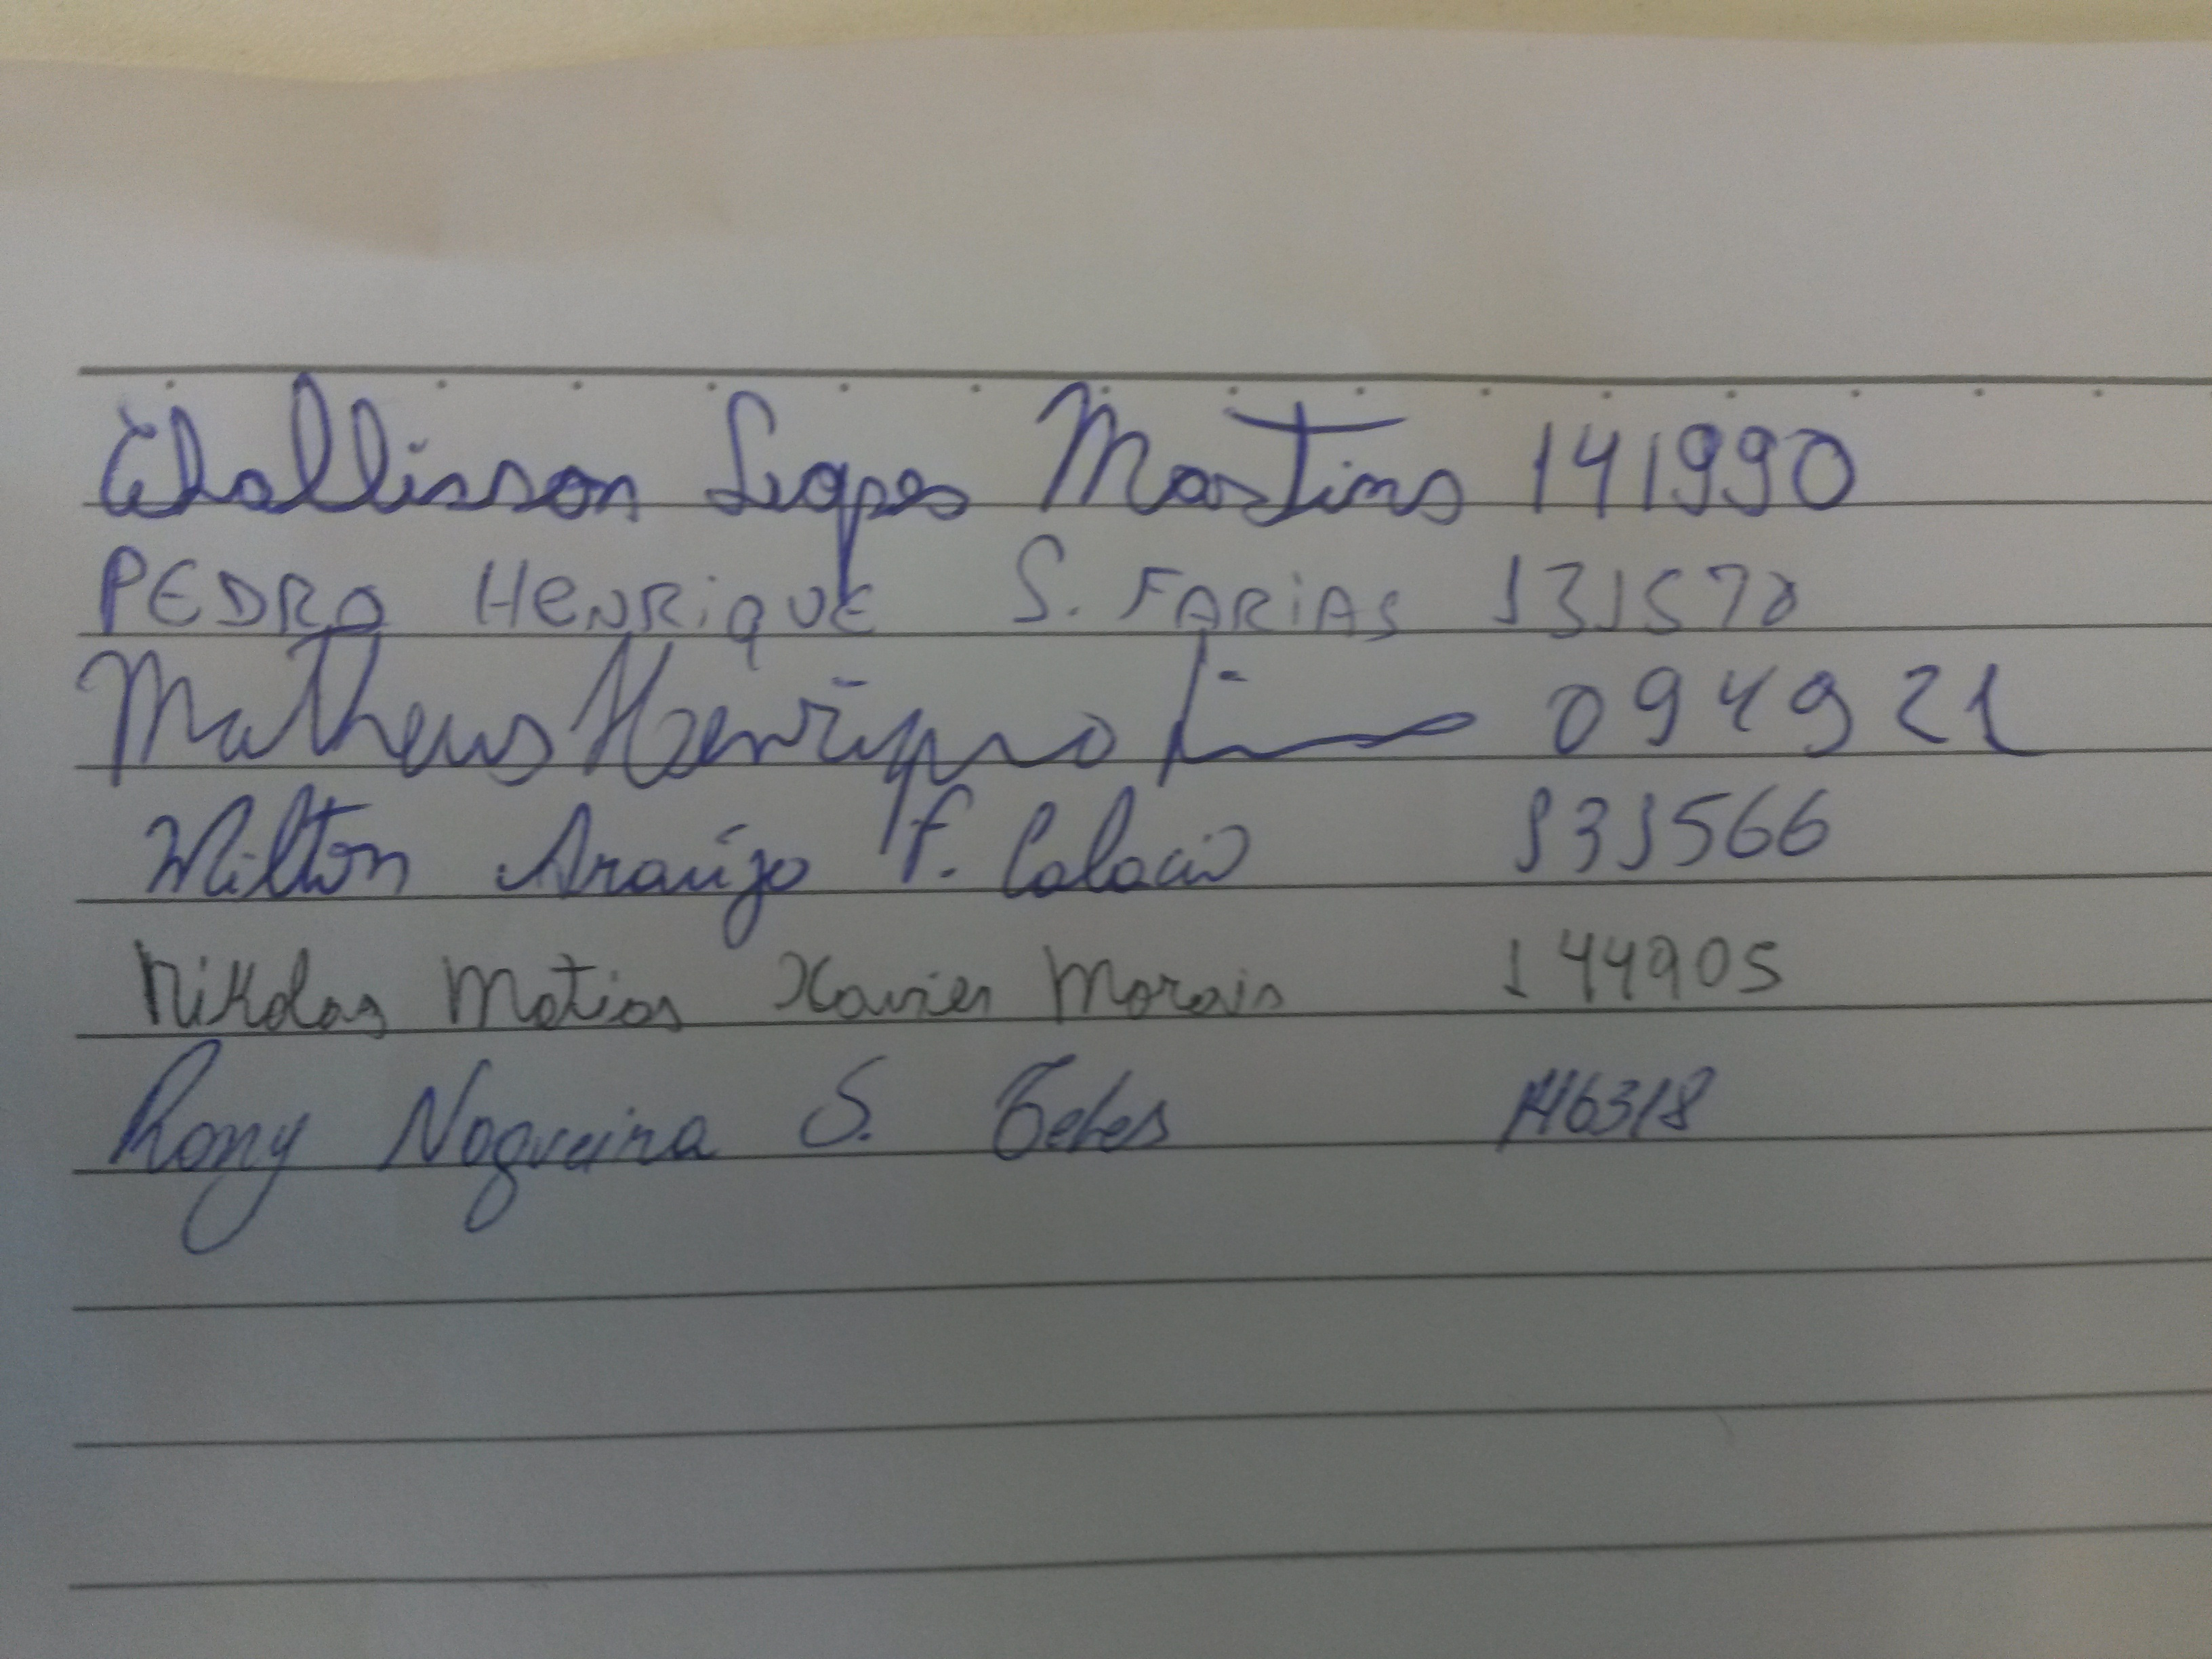 Thallisson Lopes Martins 141990
PEDRO HENRiQUE S. FARiAS 131570
Matheus Henrique 094921
Milton Araújo F. 131566
Nikolas Matias Xavier Morais 144905
Rony Nogueira S. Teles 146318